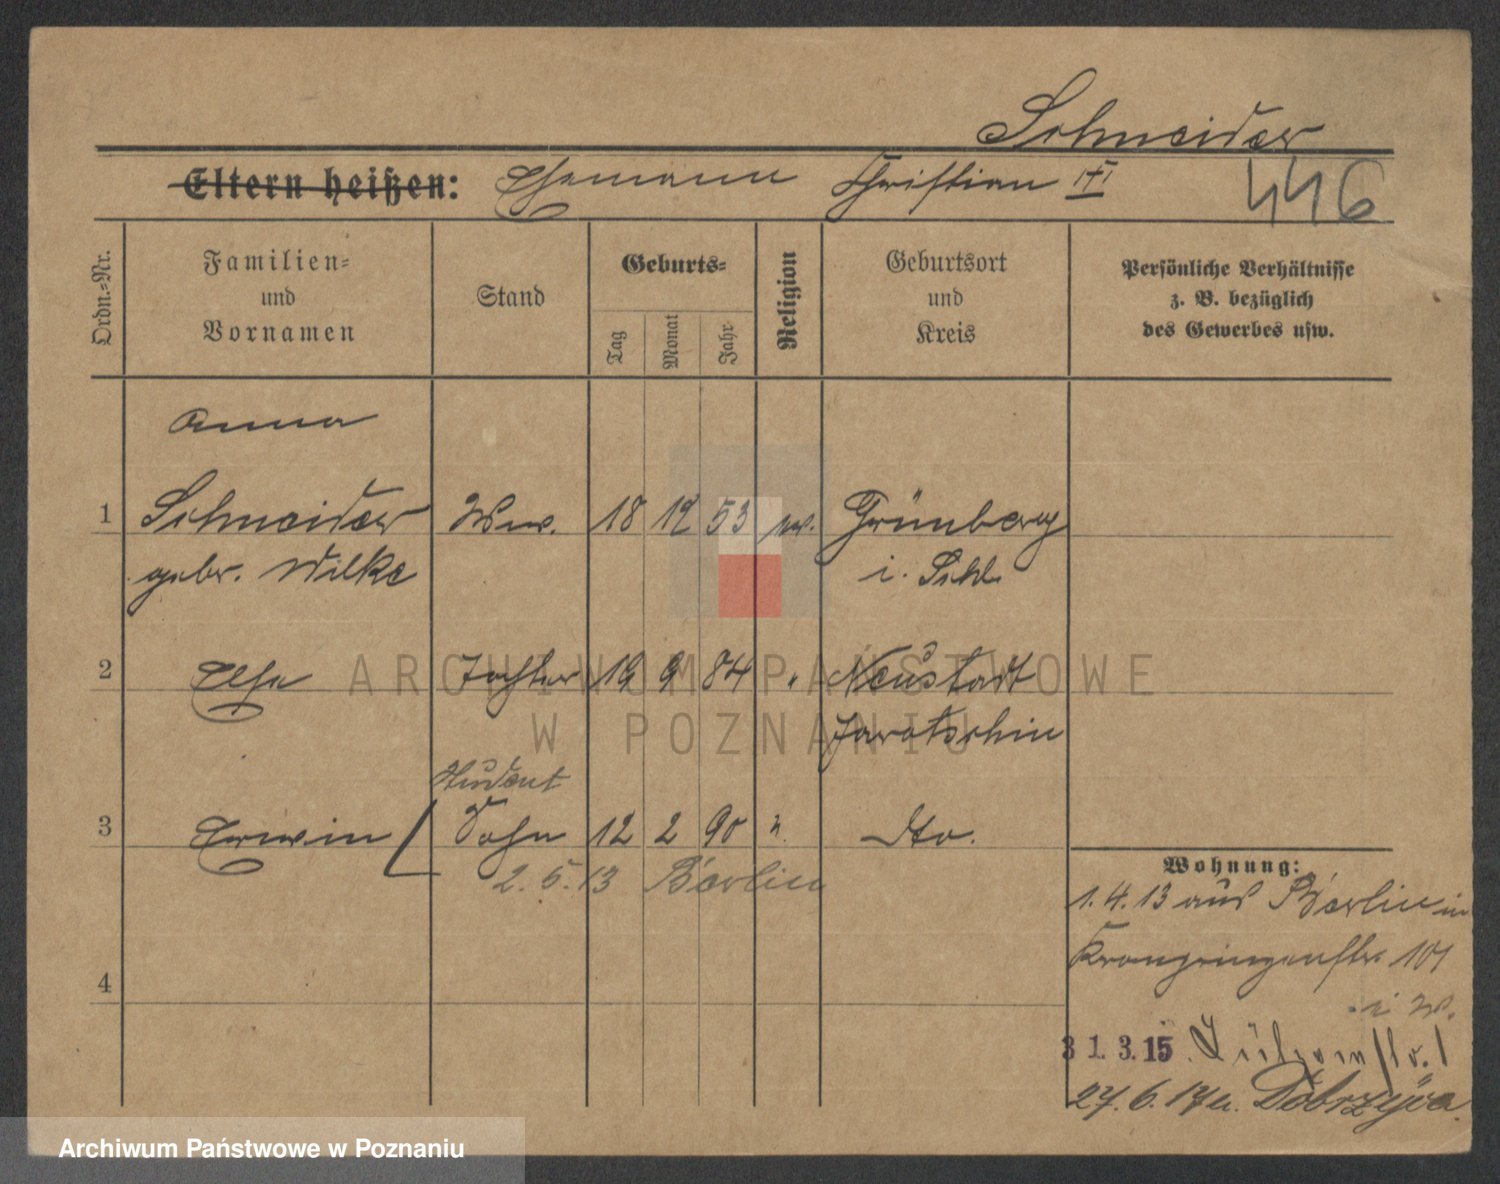 Schneider
Eltern heißen: Ehemann Christian
446
Ordn.=Nr.
Familien=
und
Vornamen
Stand
Geburts=
Tag
Monat
Jahr
Religion
Geburtsort
und
Kreis
Persönliche Verhältnisse
z. B. bezüglich
des Gewerbes usw.
Anna
1 Schneider Ww. 18 12 53 ev. Grünberg
gebr. Wilke i. Schl.
2 Else Tochter 19 9 84 " Neustadt
Jarotschin
Student
3 Erwin Sohn 12 2 90 " Dto.
2.5.13 Berlin
Wohnung:
1.4.13 aus Berlin in
Kronprinzenstr. 101
4
i W.
31.3.15.
27.6.17 n. Dobrzyca
ARCHIWUM PAŃSTWOWE
W POZNANIU
Archiwum Państwowe w Poznaniu